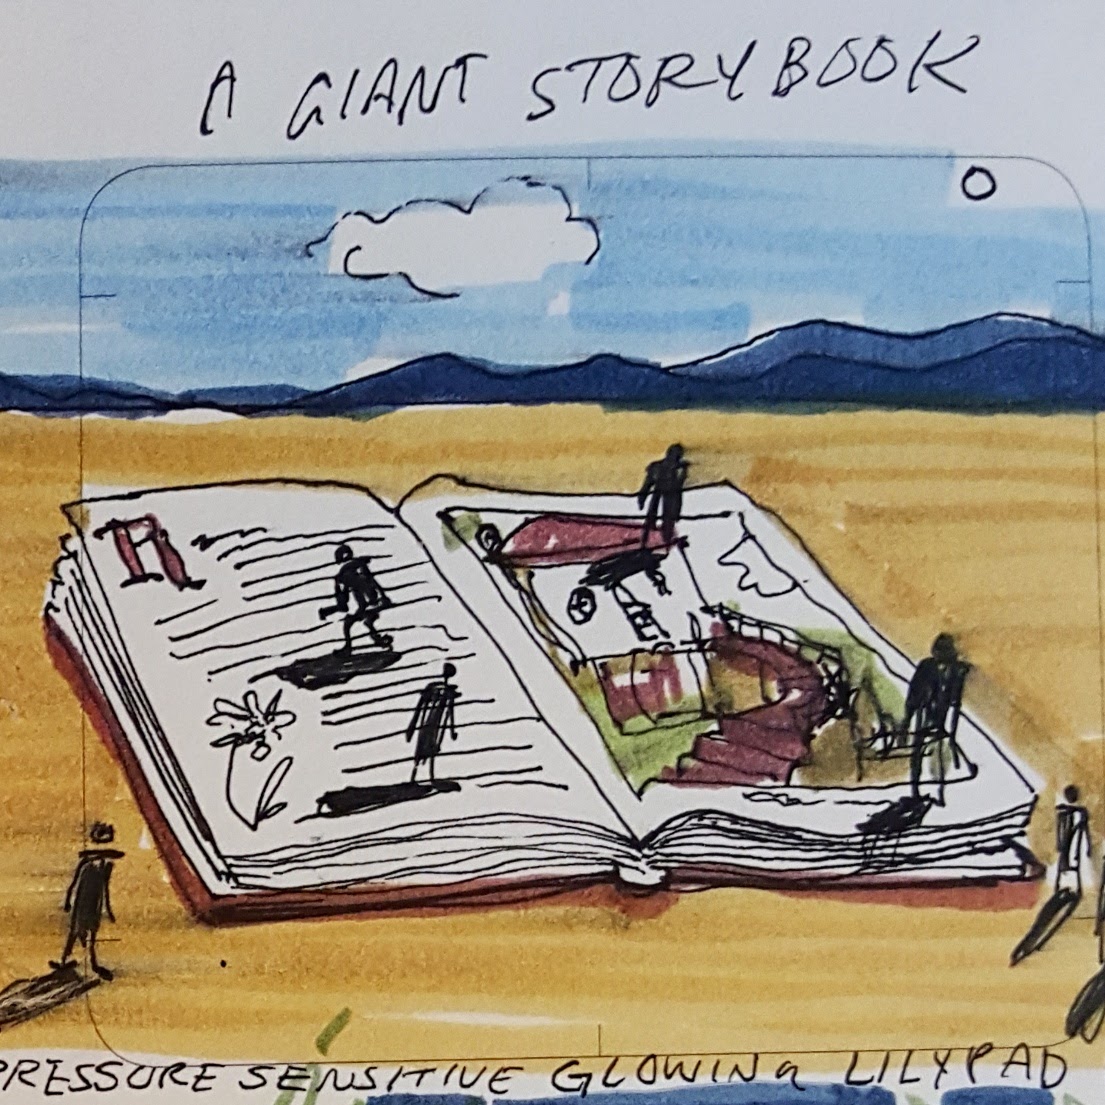 A GIANT STORYBOOK
PRESSURE SENSITIVE GLOWING LILYPAD